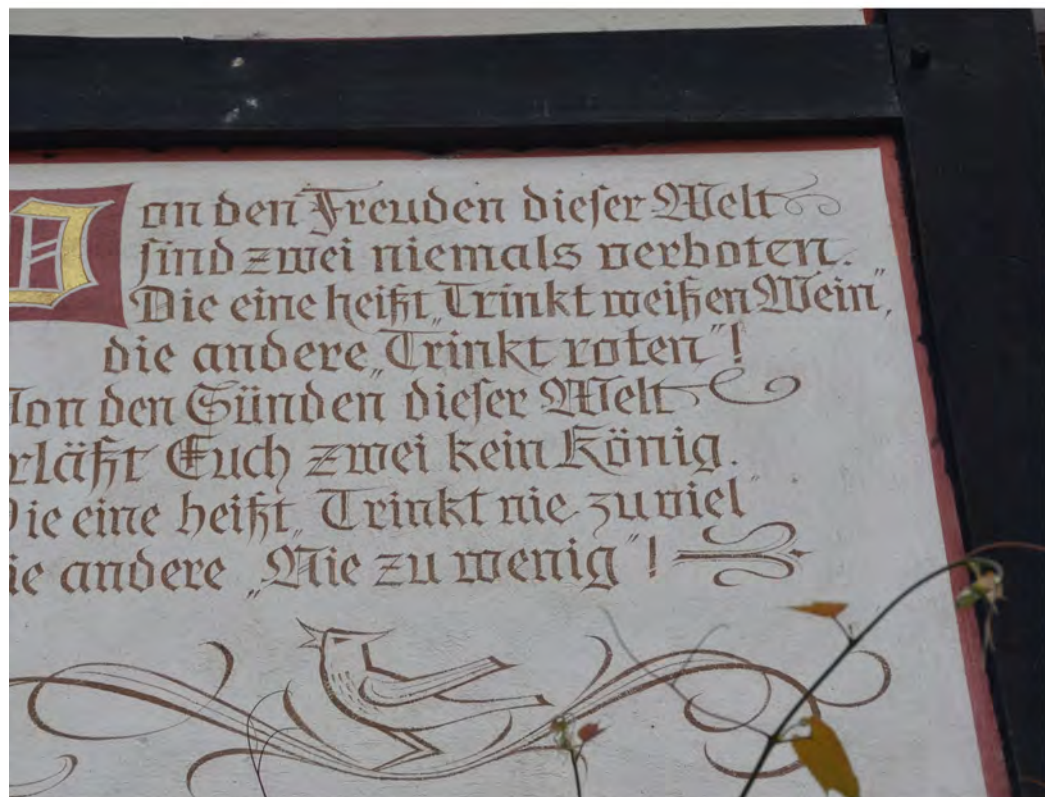 Von den Freuden dieser Welt
sind zwei niemals verboten.
Die eine heißt „Trinkt weißen Wein“,
die andere „Trinkt roten“!
Von den Sünden dieser Welt
rläßt Euch zwei kein König.
Die eine heißt „Trinkt nie zuviel“
ie andere „Nie zu wenig“!